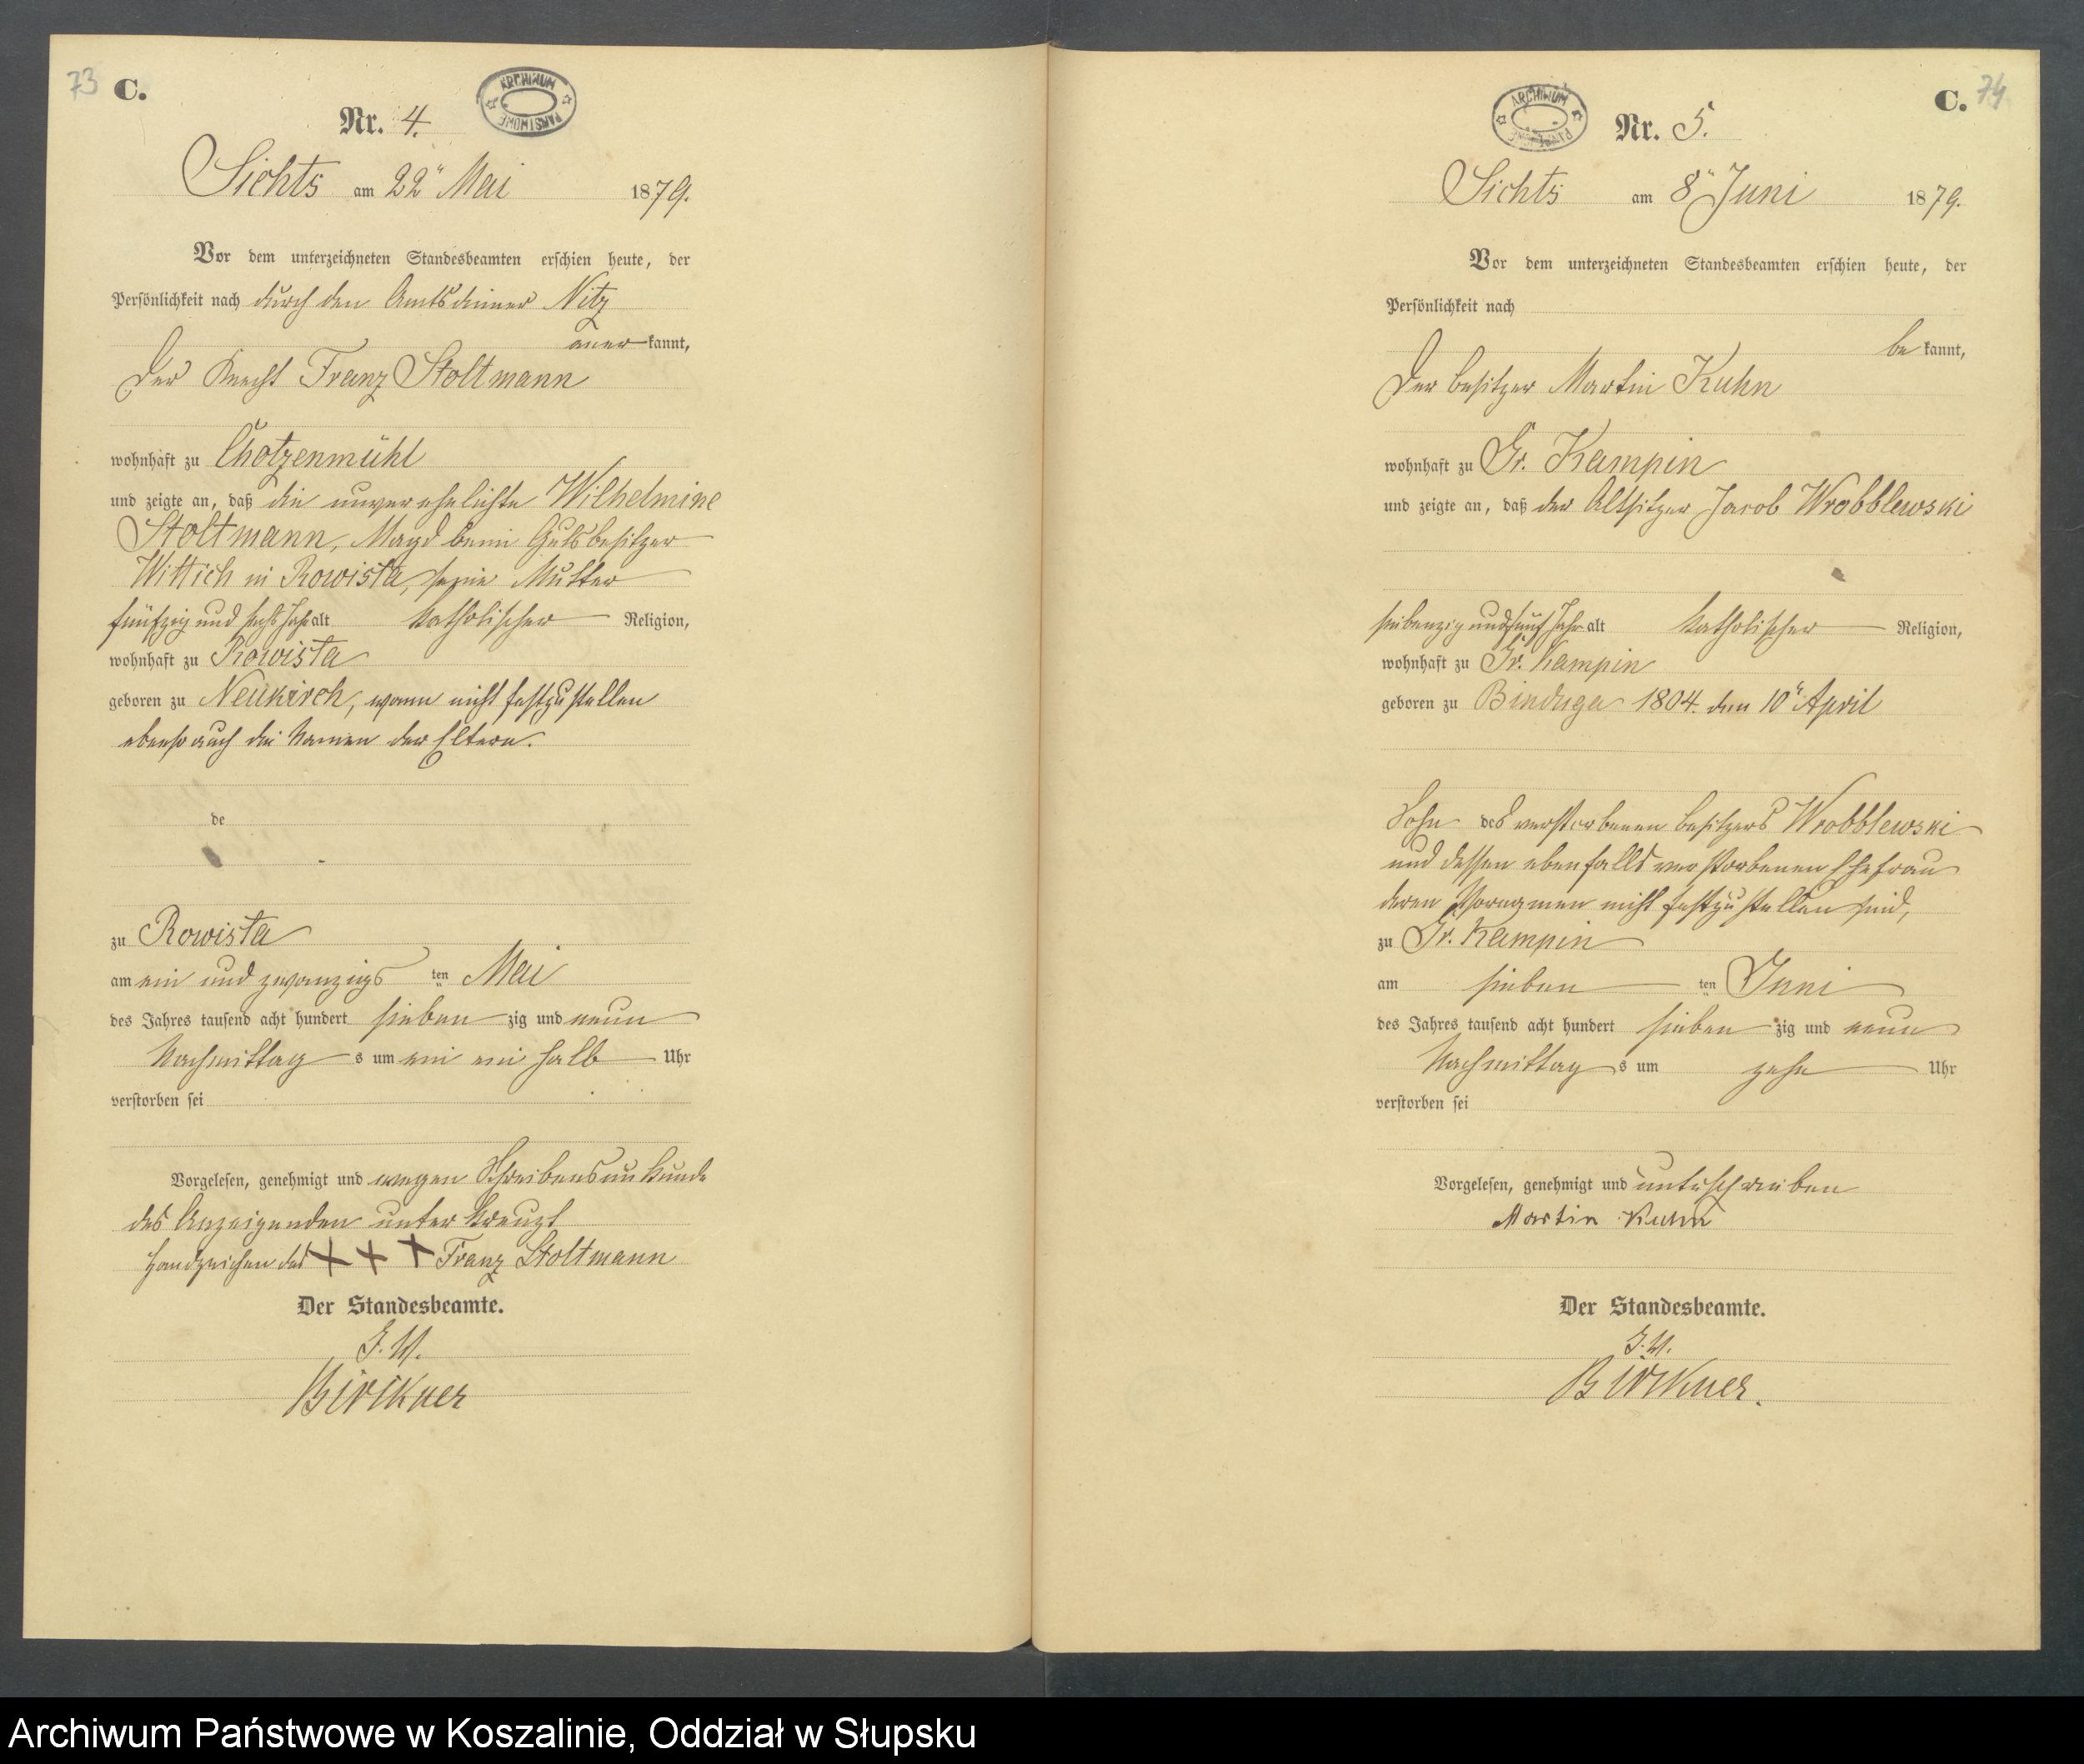 73 C.
ARCHIWUM PAŃSTWOWE
Nr. 4.
Sichts am 22ⁿ Mai 1879.
Vor dem unterzeichneten Standesbeamten erschien heute, der
Persönlichkeit nach durch den Amtsdiener Nitz
anerkannt,
Der Knecht Franz Stoltmann
wohnhaft zu Chotzenmühl
und zeigte an, daß die unverehelichte Wilhelmine
Stoltmann, Magd beim Gutsbesitzer
Wittich in Rowista, seine Mutter
fünfzig und sechs Jahr alt katholischer Religion,
wohnhaft zu Rowista
geboren zu Neukirch, wann nicht festzustellen
ebenso auch die Namen der Eltern.
de
zu Rowista
am ein und zwanzigsten Mai
des Jahres tausend acht hundert siebenzig und neun
Nachmittags um ein ein halb Uhr
verstorben sei
Vorgelesen, genehmigt und wegen Schreibensunkunde
des Anzeigenden unterkreuzt
Handzeichen des + + + Franz Stoltmann
Der Standesbeamte.
J. V.
Birckner
C. 74
ARCHIWUM PAŃSTWOWE
Nr. 5.
Sichts am 8ⁿ Juni 1879.
Vor dem unterzeichneten Standesbeamten erschien heute, der
Persönlichkeit nach
bekannt,
Der Besitzer Martin Kuhn
wohnhaft zu Gr. Kampin
und zeigte an, daß der Altsitzer Jacob Wrobblewski
siebenzig und fünf Jahr alt katholischer Religion,
wohnhaft zu Gr. Kampin
geboren zu Binduga 1804. den 10ᵗ April
Sohn des verstorbenen Besitzers Wrobblewski
und dessen ebenfalls verstorbenen Ehefrau
deren Vornamen nicht festzustellen sind,
zu Gr. Kampin
am siebenten Juni
des Jahres tausend acht hundert siebenzig und neun
Nachmittags um zehn Uhr
verstorben sei
Vorgelesen, genehmigt und unterschrieben
Martin Kuhn
Der Standesbeamte.
J. V.
Birckner.
Archiwum Państwowe w Koszalinie, Oddział w Słupsku